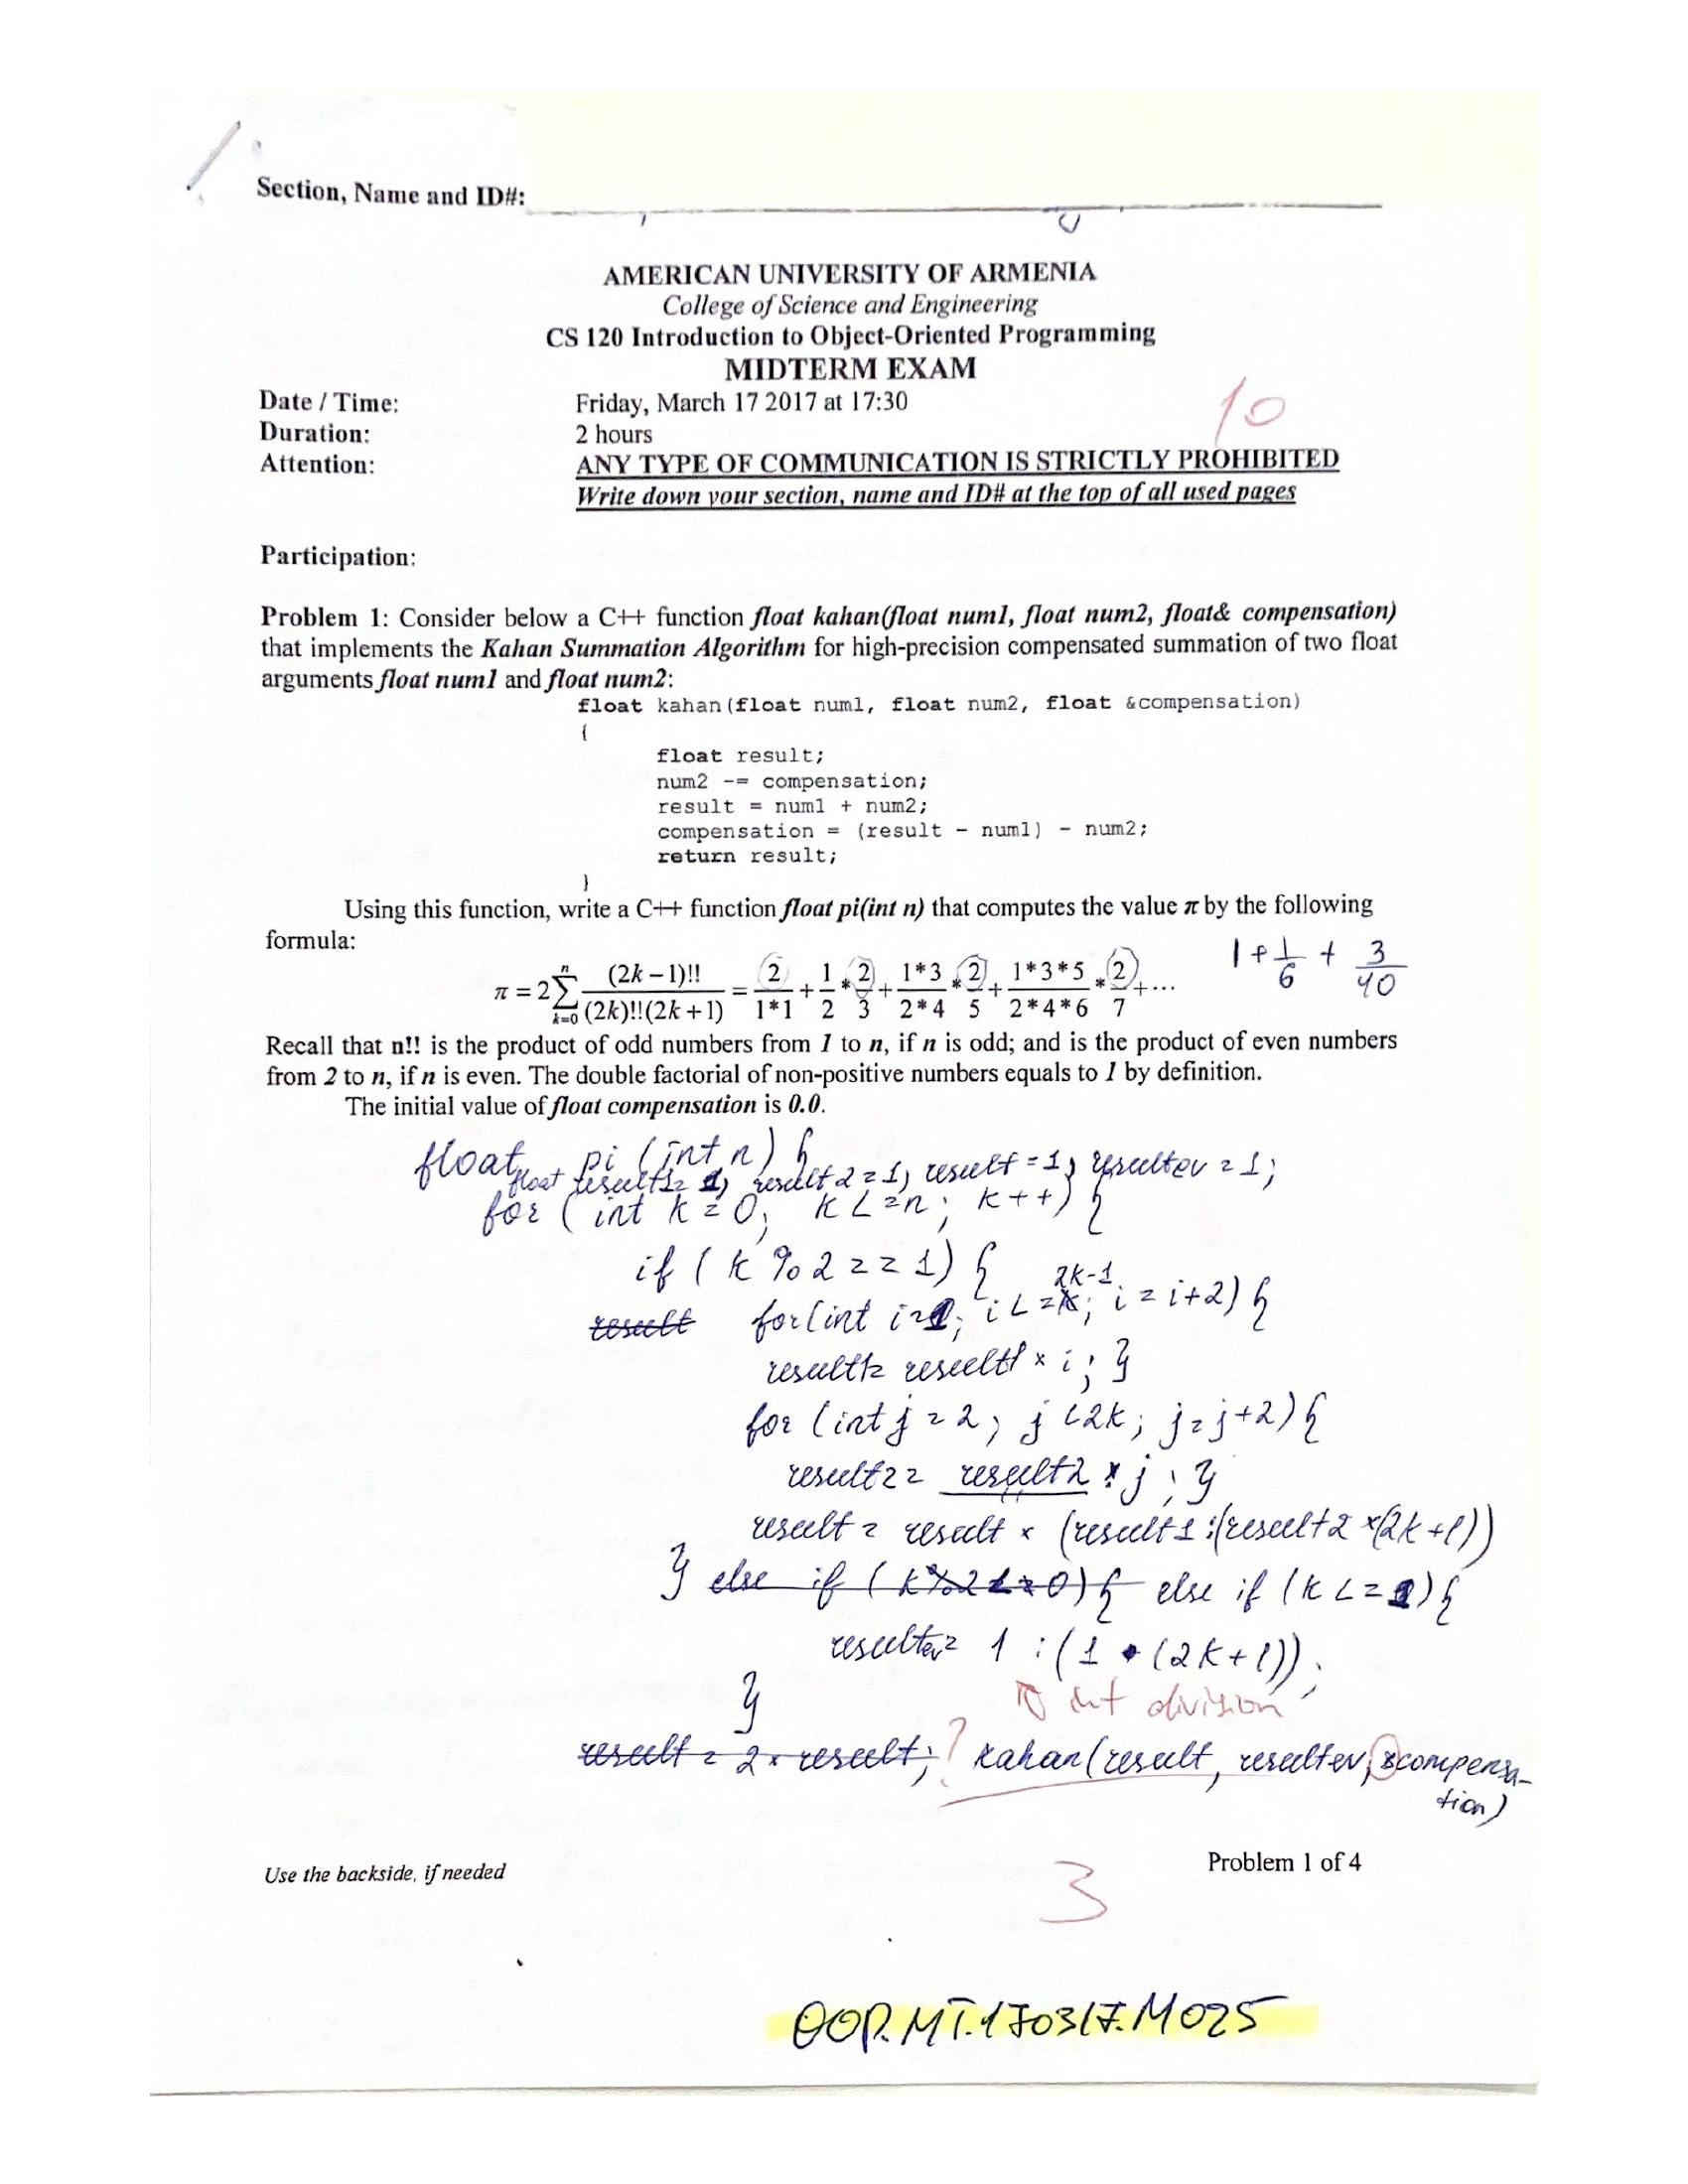 Section, Name and ID#:
AMERICAN UNIVERSITY OF ARMENIA
College of Science and Engineering
CS 120 Introduction to Object-Oriented Programming
MIDTERM EXAM
Date / Time: Friday, March 17 2017 at 17:30
10
Duration: 2 hours
Attention: ANY TYPE OF COMMUNICATION IS STRICTLY PROHIBITED
Write down your section, name and ID# at the top of all used pages
Participation:
Problem 1: Consider below a C++ function float kahan(float num1, float num2, float& compensation)
that implements the Kahan Summation Algorithm for high-precision compensated summation of two float
arguments float num1 and float num2:
float kahan(float num1, float num2, float &compensation)
{
float result;
num2 -= compensation;
result = num1 + num2;
compensation = (result - num1) - num2;
return result;
}
Using this function, write a C++ function float pi(int n) that computes the value π by the following
formula:
π = 2 Σ n k=0 (2k-1)!! / (2k)!!(2k+1) = 2 / 1*1 + 1/2 * 2/3 + 1*3 / 2*4 * 2/5 + 1*3*5 / 2*4*6 * 2/7 + ...
1 + 1/6 + 3/40
Recall that n!! is the product of odd numbers from 1 to n, if n is odd; and is the product of even numbers
from 2 to n, if n is even. The double factorial of non-positive numbers equals to 1 by definition.
The initial value of float compensation is 0.0.
float pi (int n) {
float result1=1, result2=1, result=1, resultev=1;
for (int k=0; k<=n; k++) {
if (k%2==1) {
result for(int i=1; i<=2k-1; i=i+2) {
result1= result1 * i; }
for (int j=2; j<2k; j=j+2) {
result2= result2 * j; }
result = result * (result1:(result2*(2k+1))
} else if (k%2==0) { else if (k<=1) {
resultev= 1:(1*(2k+1));
int division
}
result = 2*result; ? kahan(result, resultev, *compensa-
tion)
Use the backside, if needed
Problem 1 of 4
3
OOP.MT.170317.M025